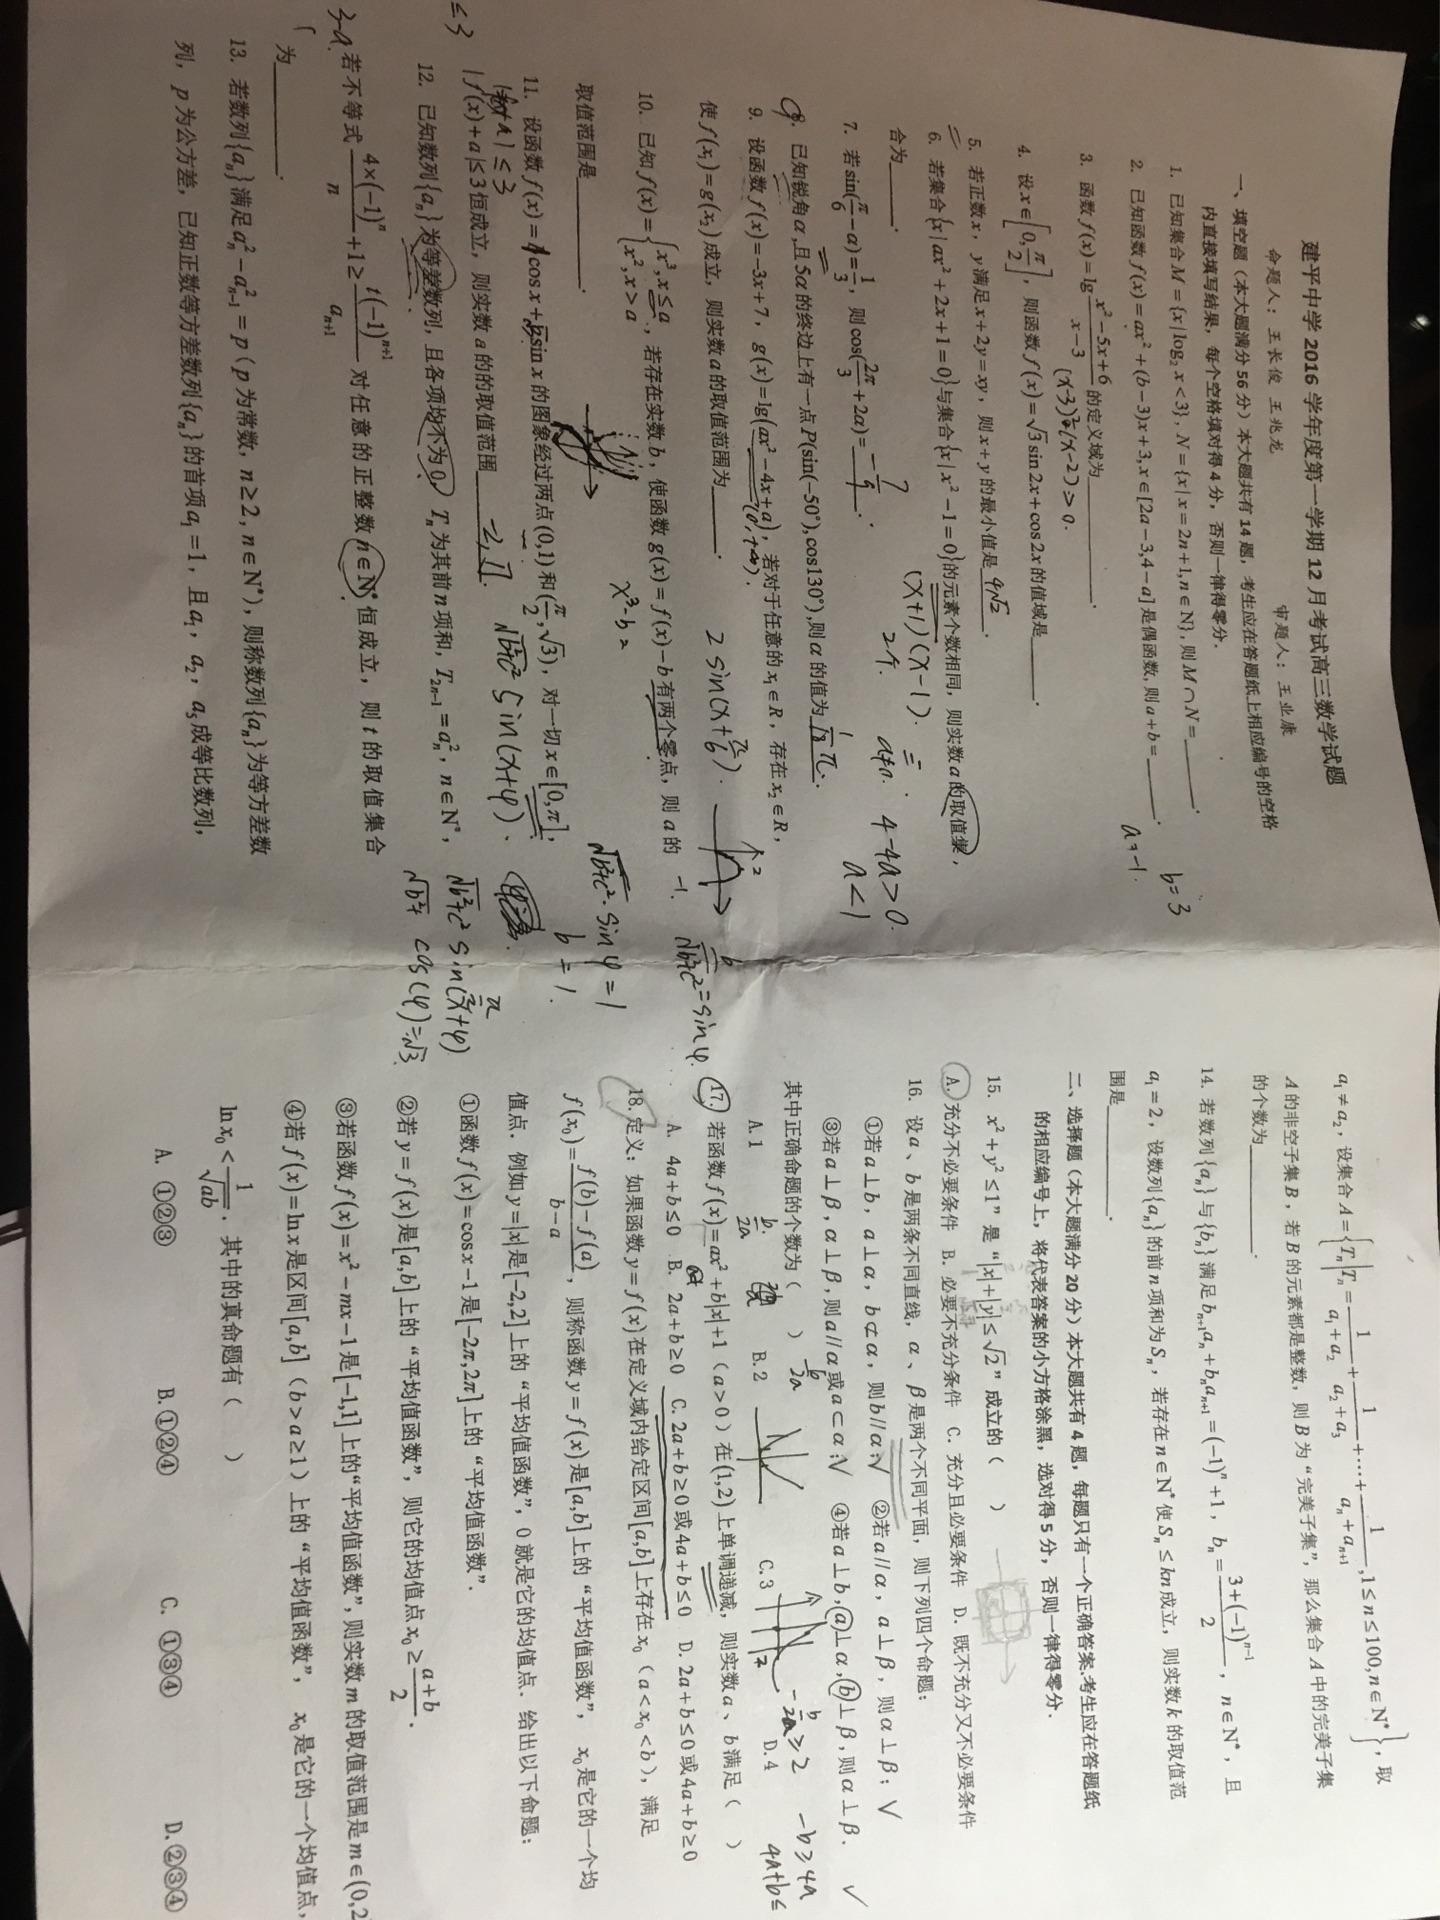 建平中学 2016 学年度第一学期 12 月考试高三数学试题
命题人：王长俊 王兆龙 审题人：王业康
一、填空题（本大题满分 56 分）本大题共有 14 题，考生应在答题纸上相应编号的空格
内直接填写结果，每个空格填对得 4 分，否则一律得零分．
1. 已知集合M={x|log₂x<3}, N={x|x=2n+1,n∈N}, 则M∩N=______.
b=3
2. 已知函数f(x)=ax²+(b-3)x+3,x∈[2a-3,4-a]是偶函数, 则a+b=______.
a=-1.
3. 函数f(x)=lg (x²-5x+6)/(x-3) 的定义域为______.
(x-3)²(x-2)>0.
4. 设x∈[0,π/2], 则函数f(x)=√3sin2x+cos2x的值域是______.
5. 若正数x, y满足x+2y=xy, 则x+y的最小值是 4√2 .
6. 若集合{x|ax²+2x+1=0}与集合{x|x²-1=0}的元素个数相同, 则实数a的取值集
合为______.
(x+1)(x-1). =
2个. a≠0. 4-4a>0.
a<1
7. 若sin(π/6-α)=1/3, 则cos(2π/3+2α)= -7/9 .
8. 已知锐角α,且5α的终边上有一点P(sin(-50°),cos130°),则α的值为______.
9. 设函数f(x)=-3x+7, g(x)=lg(ax²-4x+a), 若对于任意的x₁∈R, 存在x₂∈R,
(0,+∞).
使f(x₁)=g(x₂)成立, 则实数a的取值范围为______.
2sin(x+π/6).
10. 已知f(x)={x³,x≤a x²,x>a, 若存在实数b, 使函数g(x)=f(x)-b有两个零点, 则a的
取值范围是______.
x³-b=
11. 设函数f(x)= cosx+ sinx的图象经过两点(0,1)和(π/2,√3), 对一切x∈[0,π],
|f(x)+a|≤3恒成立, 则实数a的的取值范围 -2,1 .
√b²+c² sin(x+φ).
√b²+c²·sinφ=1
b=1.
b/√b²+c²=sinφ.
√b²+c² sin(π/2+φ)
cos(φ)=√3.
≤3
12. 已知数列{aₙ}为等差数列, 且各项均不为0, Tₙ为其前n项和, T₂ₙ₋₁=aₙ², n∈N*,
若不等式 4×(-1)ⁿ/n+1≥t(-1)ⁿ⁺¹/aₙ₊₁ 对任意的正整数n∈N*恒成立, 则t的取值集合
3-a
为______.
13. 若数列{aₙ}满足aₙ²-aₙ₋₁²=p（p为常数, n≥2, n∈N*）, 则称数列{aₙ}为等方差数
列, p为公方差, 已知正数等方差数列{aₙ}的首项a₁=1, 且a₁, a₂, a₅成等比数列,
a₁≠a₂, 设集合A={Tₙ|Tₙ=1/(a₁+a₂)+1/(a₂+a₃)+…+1/(aₙ+aₙ₊₁),1≤n≤100,n∈N*}, 取
A的非空子集B, 若B的元素都是整数, 则B为“完美子集”, 那么集合A中的完美子集
的个数为______.
14. 若数列{aₙ}与{bₙ}满足bₙ₊₁aₙ+bₙaₙ₊₁=(-1)ⁿ+1, bₙ=(3+(-1)ⁿ⁻¹)/2, n∈N*, 且
a₁=2, 设数列{aₙ}的前n项和为Sₙ, 若存在n∈N*使Sₙ≤kn成立, 则实数k的取值范
围是______.
二、选择题（本大题满分 20 分）本大题共有 4 题，每题只有一个正确答案.考生应在答题纸
的相应编号上，将代表答案的小方格涂黑，选对得 5 分，否则一律得零分．
15. x²+y²≤1” 是 “|x|+|y|≤√2” 成立的（ ）
A. 充分不必要条件 B. 必要不充分条件 C. 充分且必要条件 D. 既不充分又不必要条件
16. 设a、b是两条不同直线, α、β是两个不同平面, 则下列四个命题:
①若a⊥b, a⊥α, b⊄α, 则b//α; √ ②若a//α, a⊥β, 则α⊥β; √
③若a⊥β,α⊥β,则a//α或a⊂α; √ ④若a⊥b,a⊥α,b⊥β,则α⊥β. √
其中正确命题的个数为（ ）
A. 1 B. 2 C. 3 D. 4
-b/2a≥2
-b≥4a
4a+b≤
17. 若函数f(x)=ax²+b|x|+1（a>0）在(1,2)上单调递减, 则实数a、b满足（ ）
A. 4a+b≤0 B. 2a+b≥0 C. 2a+b≥0或4a+b≤0 D. 2a+b≤0或4a+b≥0
18. 定义：如果函数y=f(x)在定义域内给定区间[a,b]上存在x₀（a<x₀<b）, 满足
f(x₀)=(f(b)-f(a))/(b-a), 则称函数y=f(x)是[a,b]上的“平均值函数”, x₀是它的一个均
值点. 例如y=|x|是[-2,2]上的“平均值函数”, 0就是它的均值点. 给出以下命题:
①函数f(x)=cosx-1是[-2π,2π]上的“平均值函数”.
②若y=f(x)是[a,b]上的“平均值函数”, 则它的均值点x₀≥(a+b)/2.
③若函数f(x)=x²-mx-1是[-1,1]上的“平均值函数”, 则实数m的取值范围是m∈(0,2
④若f(x)=lnx是区间[a,b]（b>a≥1）上的“平均值函数”, x₀是它的一个均值点,
lnx₀<1/√ab. 其中的真命题有（ ）
A. ①②③ B. ①②④ C. ①③④ D. ②③④